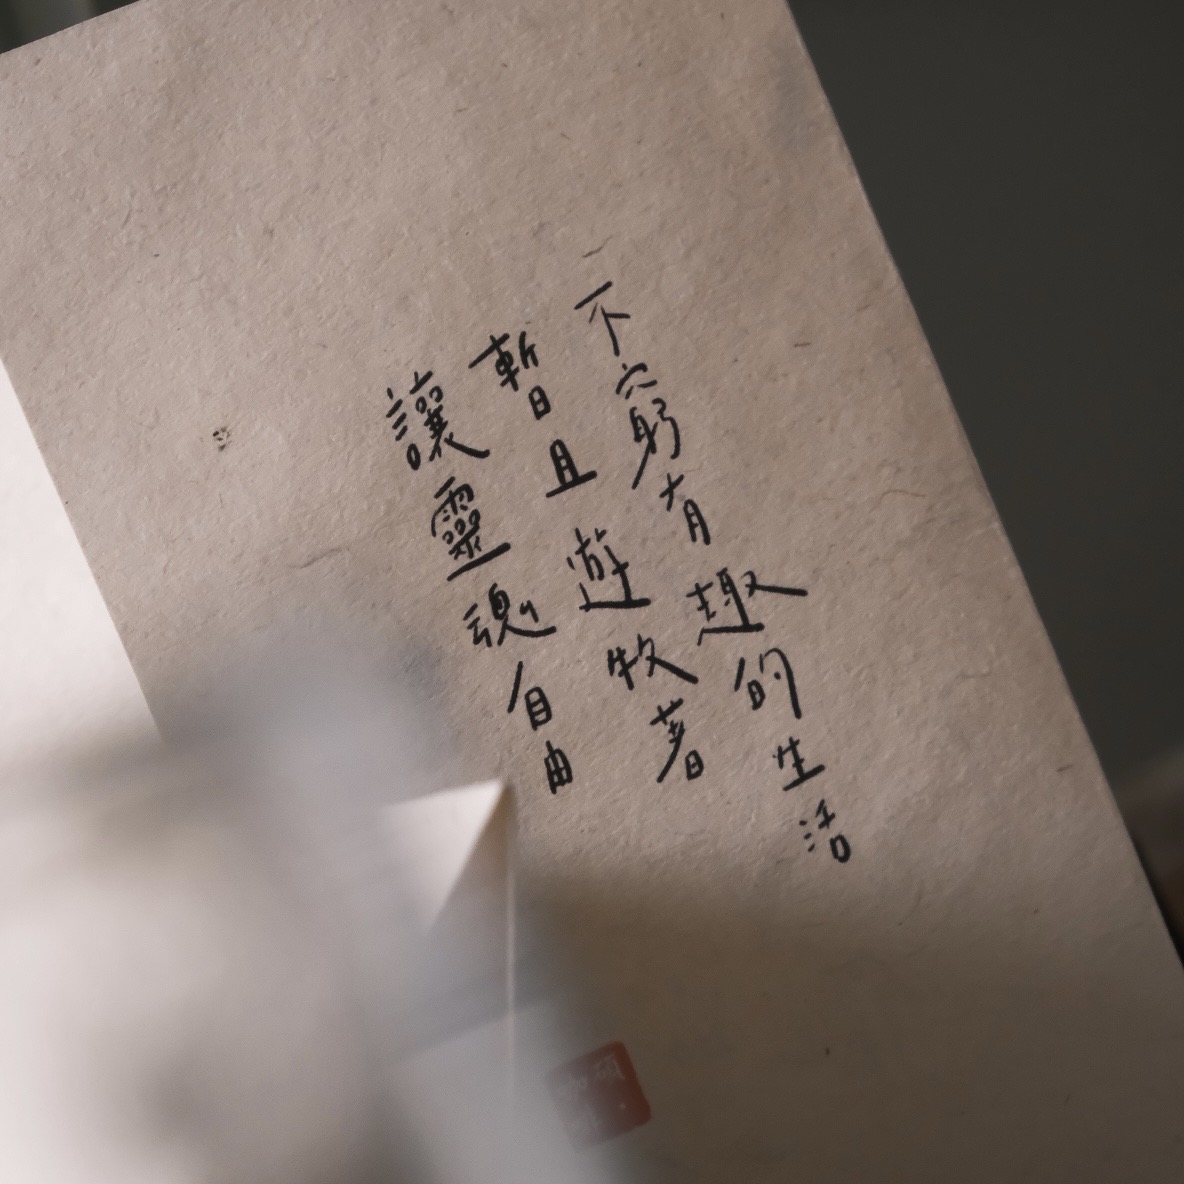 不窮有趣的生活
暫且遊牧著
讓靈魂自由